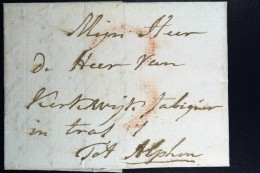 Mijn Heer
de Heer Van
Kerkwijk fabiquer
in tras
Tot Alphen